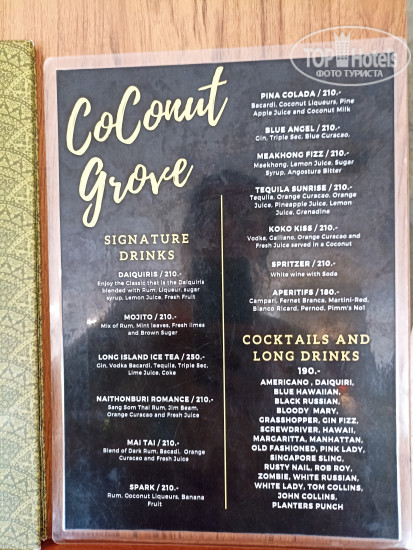 TOP Hotels
ФОТО ТУРИСТА
CoConut
Grove
SIGNATURE
DRINKS
DAIQUIRIS / 210.-
Enjoy the Classic that is the Daiquiris
blended with Rum, Liqueur, sugar
syrup, Lemon Juice, Fresh Fruit
MOJITO / 210.-
Mix of Rum, Mint leaves, Fresh limes
and Brown Sugar
LONG ISLAND ICE TEA / 250.-
Gin, Vodka Bacardi, Tequila, Triple Sec,
Lime Juice, Coke
NAITHONBURI ROMANCE / 210.-
Sang Som Thai Rum, Jim Beam,
Orange Curacao and Fresh Juice
MAI TAI / 210.-
Blend of Dark Rum, Bacadi, Orange
Curacao and Fresh Juice
SPARK / 210.-
Rum, Coconut Liqueurs, Banana
Fruit
PINA COLADA / 210.-
Bacardi, Coconut Liqueurs, Pine
Apple Juice and Coconut Milk
BLUE ANGEL / 210.-
Gin, Triple Sec, Blue Curacao,
MEAKHONG FIZZ / 210.-
Maekhong, Lemon Juice, Sugar
Syrup, Angostura Bitter
TEQUILA SUNRISE / 210.-
Tequila, Orange Curacao, Orange
Juice, Pineapple Juice, Lemon
Juice, Grenadine
KOKO KISS / 210.-
Vodka, Galliano, Orange Curacao and
Fresh Juice served in a Coconut
SPRITZER / 210.-
White wine with Soda
APERITIFS / 180.-
Campari, Fernet Branca, Martini-Red,
Bianco Ricard, Pernod, Pimm's No1
COCKTAILS AND
LONG DRINKS
190.-
AMERICANO , DAIQUIRI,
BLUE HAWAIIAN,
BLACK RUSSIAN,
BLOODY MARY,
GRASSHOPPER, GIN FIZZ,
SCREWDRIVER, HAWAII,
MARGARITTA, MANHATTAN,
OLD FASHIONED, PINK LADY,
SINGAPORE SLING,
RUSTY NAIL, ROB ROY,
ZOMBIE, WHITE RUSSIAN,
WHITE LADY, TOM COLLINS,
JOHN COLLINS,
PLANTERS PUNCH